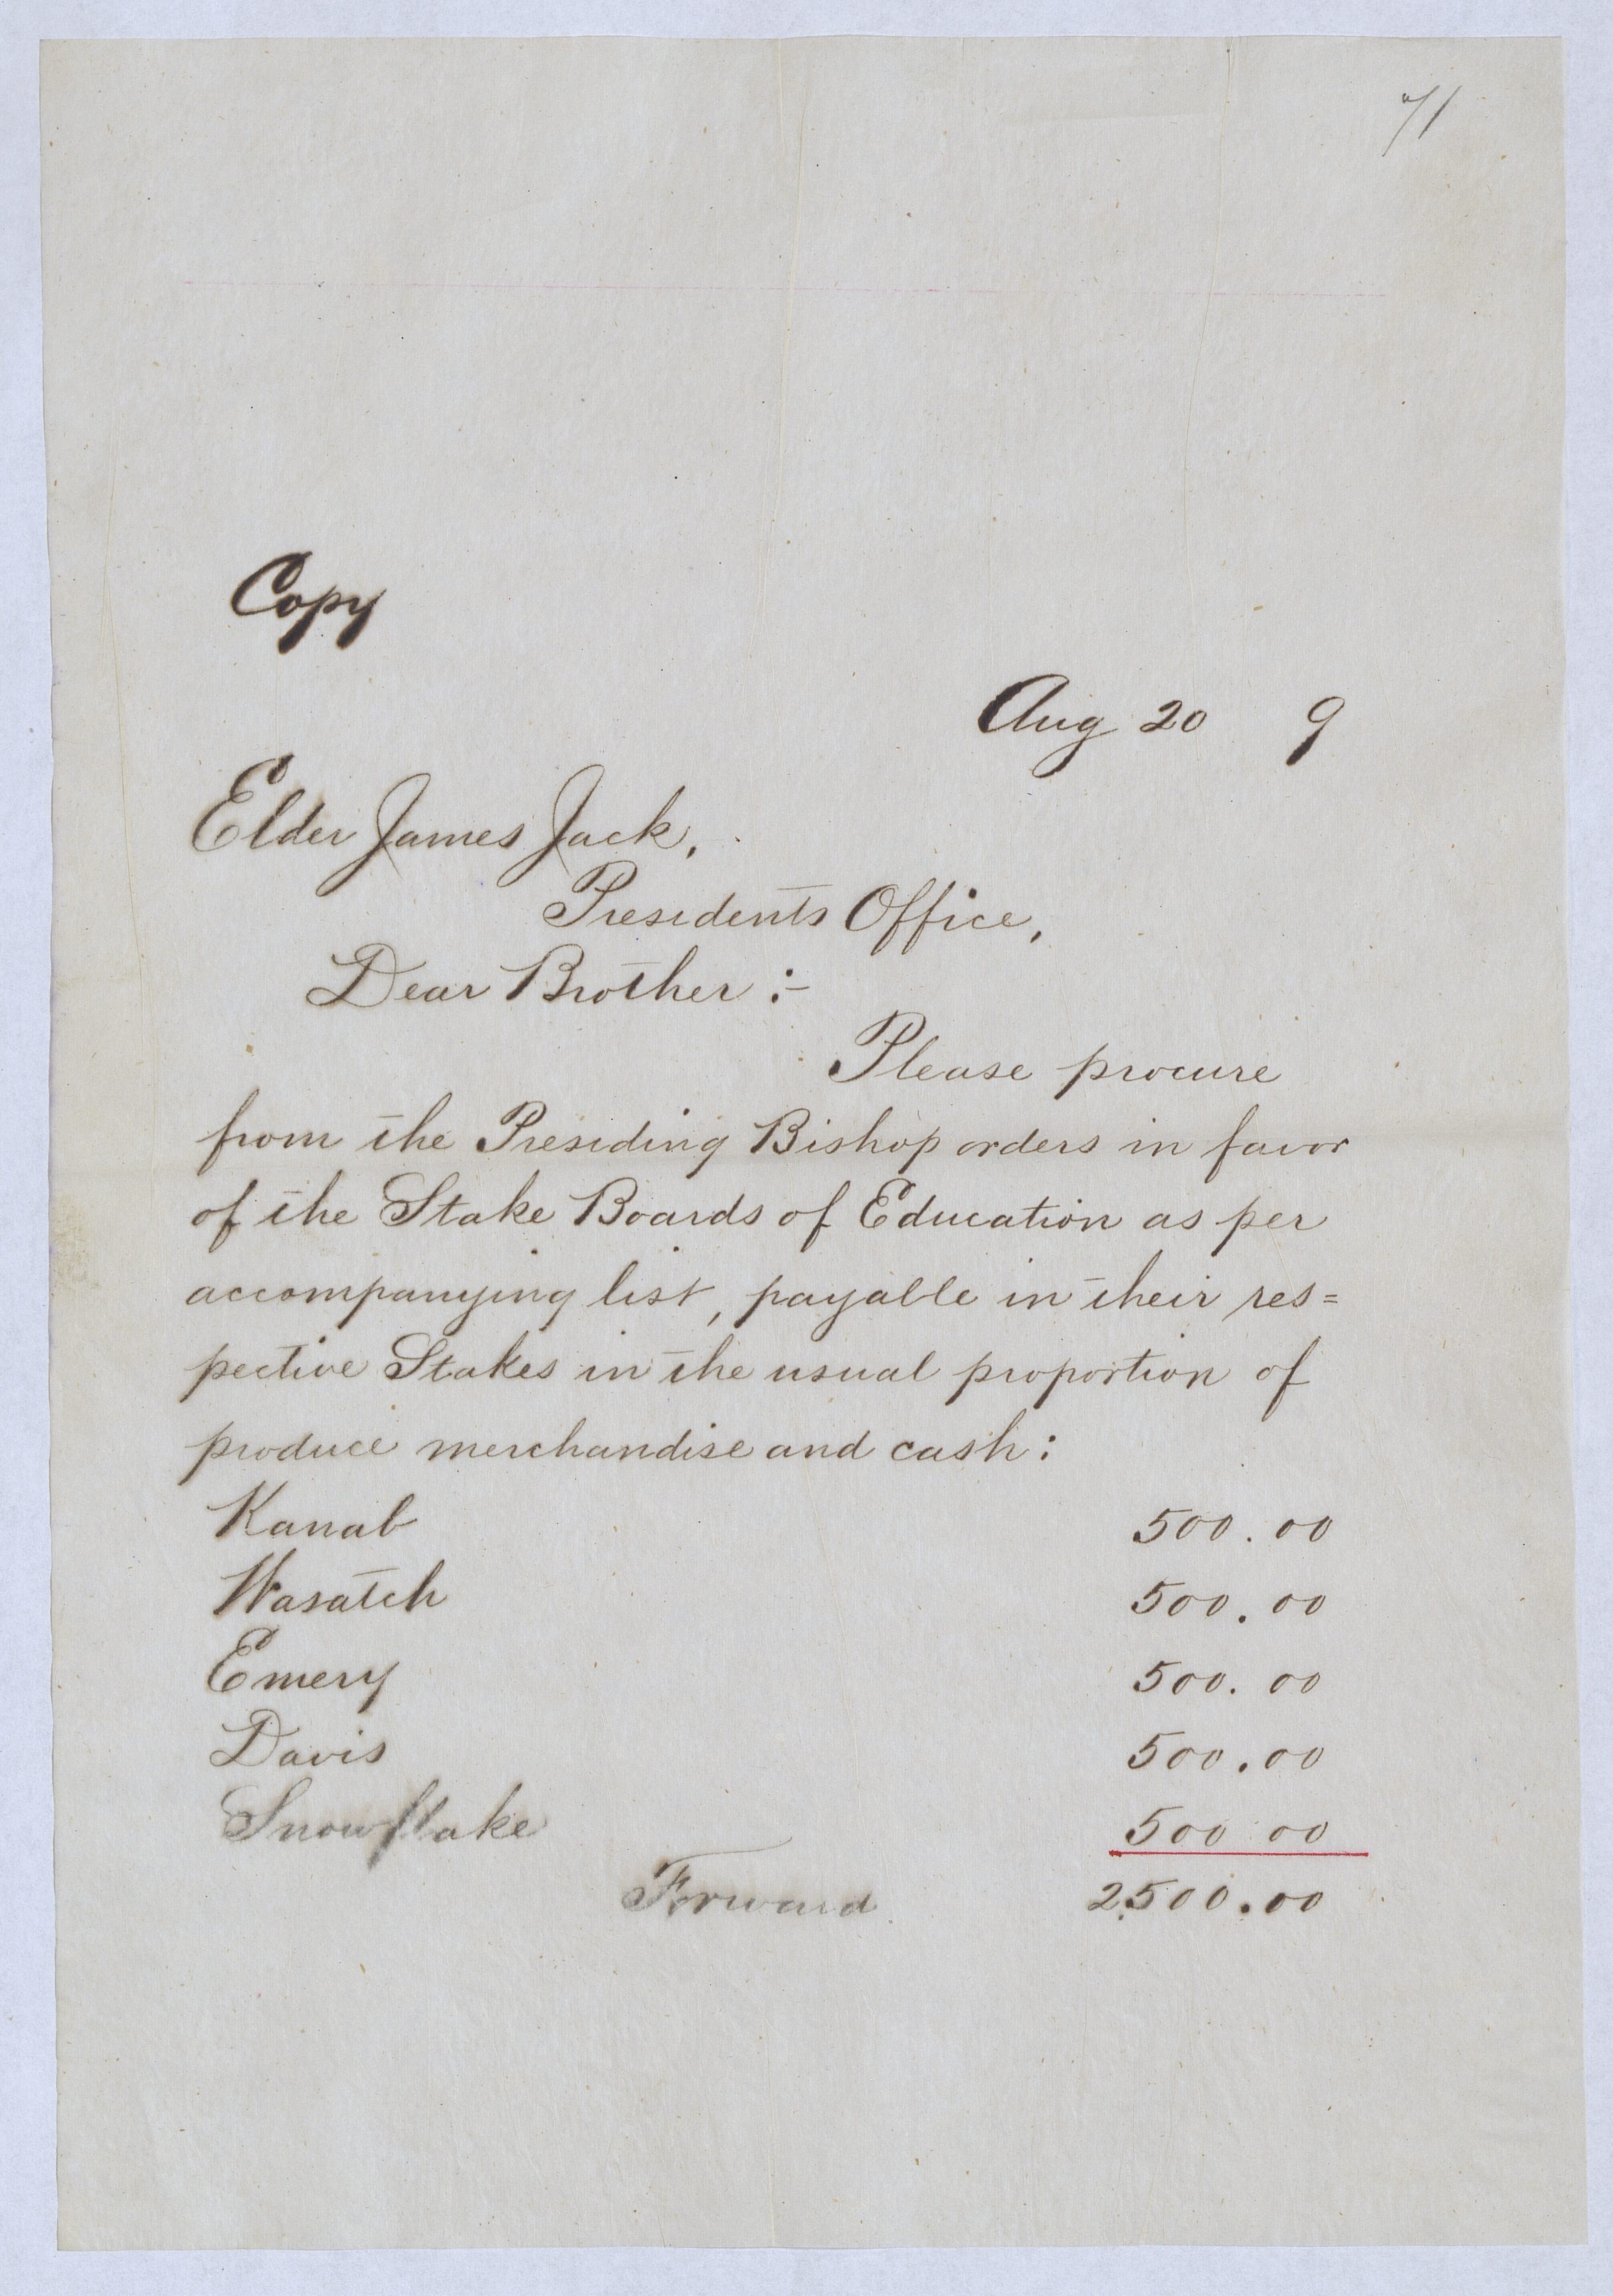 71
Copy
Aug 20 9
Elder James Jack,
Presidents Office,
Dear Brother :-
Please procure
from the Presiding Bishop orders in favor
of the Stake Boards of Education as per
accompanying list, payable in their res=
pective Stakes in the usual proportion of
produce merchandise and cash:
Kanab 500.00
Wasatch 500.00
Emery 500.00
Davis 500.00
Snowflake 500 00
Forward 2,500.00